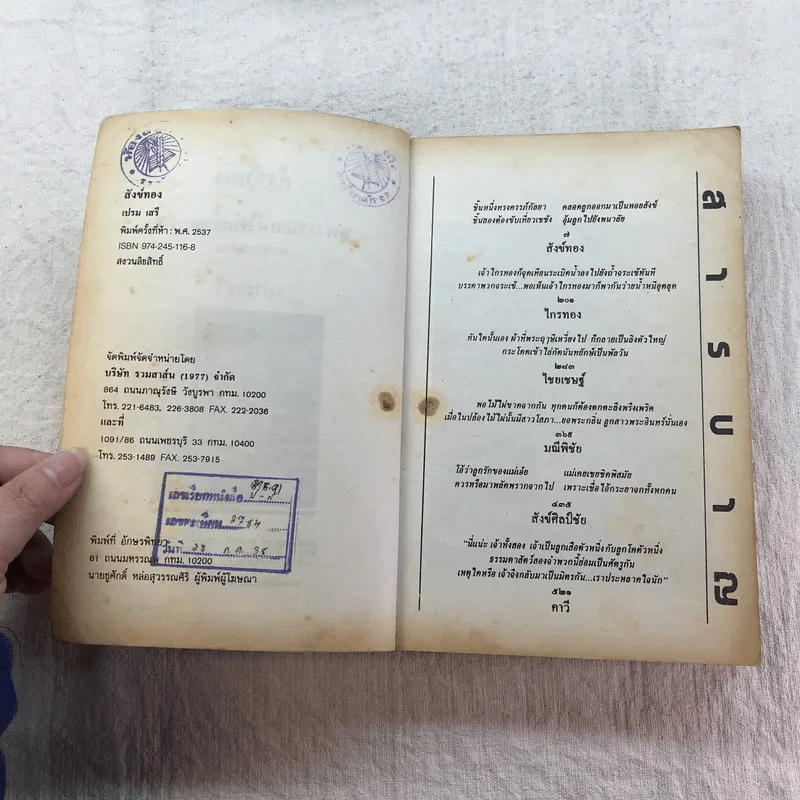 สังข์ทอง
เปรม เสรี
พิมพ์ครั้งที่ห้า : พ.ศ. 2537
ISBN 974-245-116-8
สงวนลิขสิทธิ์
จัดพิมพ์จัดจำหน่ายโดย
บริษัท รวมสาส์น (1977) จำกัด
864 ถนนภาณุรังษี วังบูรพา กทม. 10200
โทร. 221-6483, 226-3808 FAX. 222-2036
และที่
1091/86 ถนนเพชรบุรี 33 กทม. 10400
โทร. 253-1489 FAX. 253-7915
เลขเรียกหนังสือ
เลขทะเบียน
วันที่ 28 ก.ค. 38
พิมพ์ที่ อักษรพิทยา
61 ถนนมหรรณพ กทม. 10200
นายชูศักดิ์ หล่อสุวรรณศิริ ผู้พิมพ์ผู้โฆษณา
สารบาญ
ชิ้นหนึ่งทรงครรภ์กัลยา คลอดลูกออกมาเป็นหอยสังข์
ชิ้นสองต้องขับเที่ยวเซซัง อุ้มลูกไปยังพนาลัย
๗
สังข์ทอง
เจ้าไกรทองก็จุดเทียนระเบิดน้ำลงไปยังถ้ำจระเข้ทันที
บรรดาพวกจระเข้...พอเห็นเจ้าไกรทองมาก็พากันว่ายน้ำหนีอุตลุด
๒๐๑
ไกรทอง
ทันใดนั้นเอง ผ้าที่พระฤาษีเหวี่ยงไป ก็กลายเป็นลิงตัวใหญ่
กระโดดเข้าไล่กัดนันทยักษ์เป็นพัลวัน
๒๘๓
ไชยเชษฐ์
พอไม้ไผ่ขาดจากกัน ทุกคนก็ต้องตกตะลึงพรึงเพริด
เมื่อในปล้องไม้ไผ่นั้นมีสาวโสภา...ยอพระกลิ่น ลูกสาวพระอินทร์นั่นเอง
๓๖๕
มณีพิชัย
โอ้ว่าลูกรักของแม่เอ๋ย แม่เคยเชยชิดพิสมัย
ควรหรือมาพลัดพรากจากไป เพราะเชื่อไอ้กระยาจกทั้งหกคน
๔๓๕
สังข์ศิลป์ชัย
"นี่แน่ะ เจ้าทั้งสอง เจ้าเป็นลูกเสือตัวหนึ่งกับลูกโคตัวหนึ่ง
ธรรมดาสัตว์สองจำพวกนี้ย่อมเป็นศัตรูกัน
เหตุใดหรือ เจ้าจึงกลับมาเป็นมิตรกัน...เราประหลาดใจนัก"
๕๒๑
คาวี